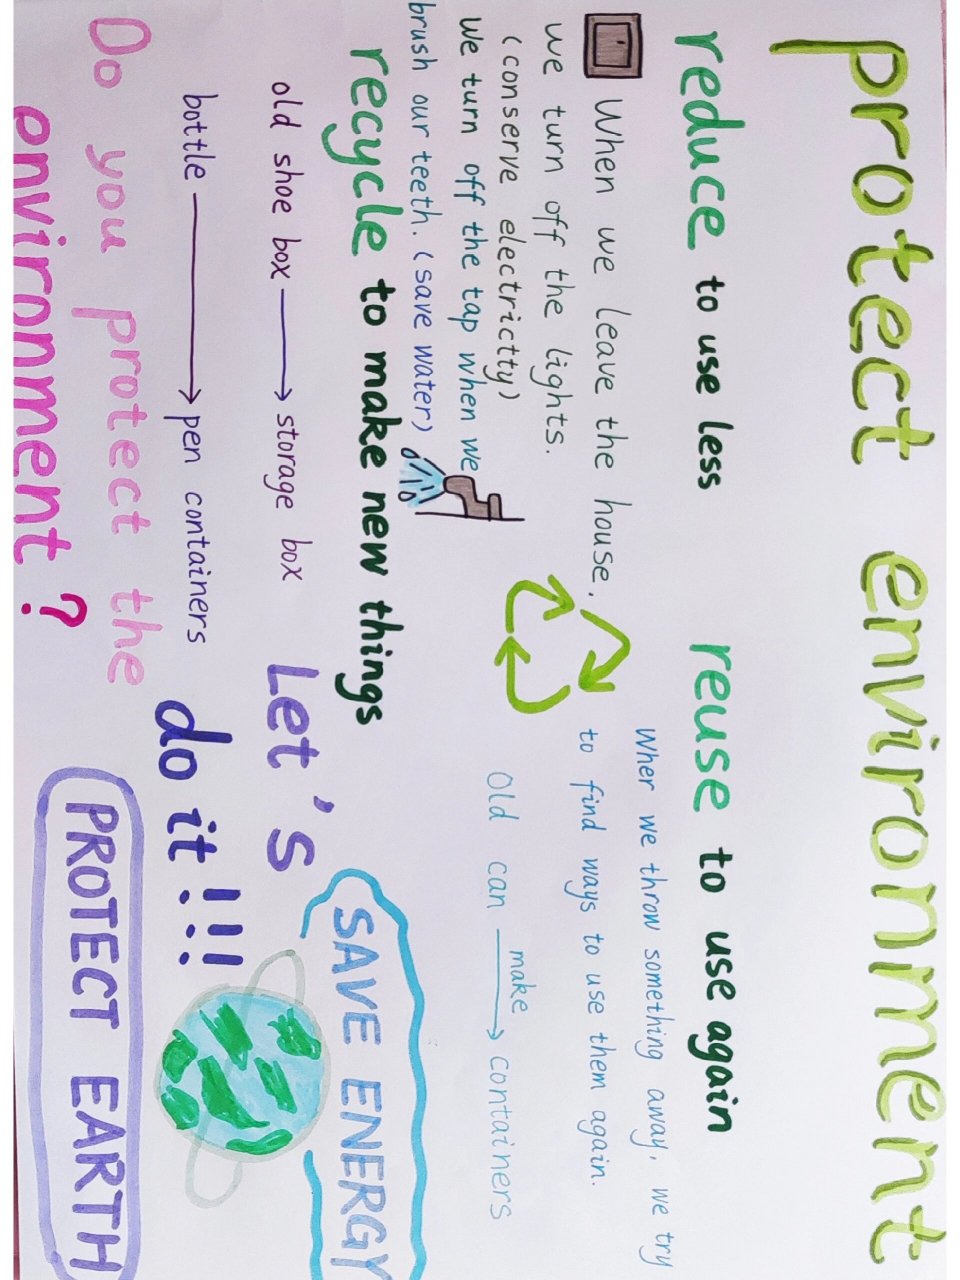 protect environment
reduce to use less
When we leave the house.
we turn off the lights.
(conserve electrictty)
We turn off the tap when we
brush our teeth. (save water)
reuse to use again
Wher we throw something away, we try
to find ways to use them again.
Old can make containers
recycle to make new things
old shoe box storage box
bottle pen containers
Do you protect the
environment?
Let's
do it!!!
SAVE ENERGY
PROTECT EARTH